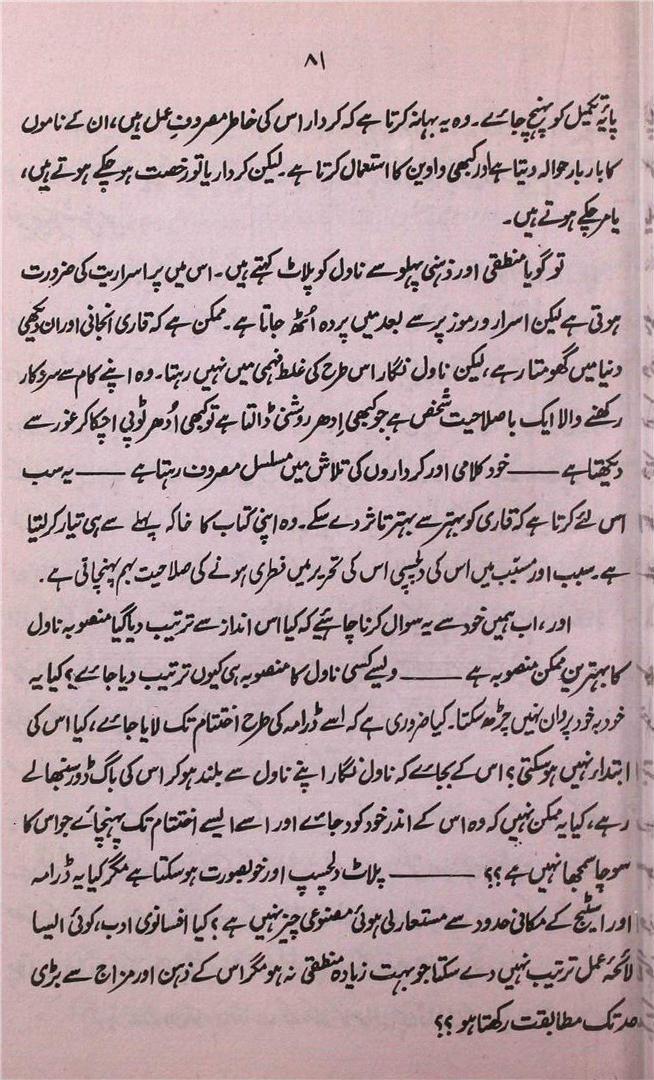 ۸۱
پایۂ تکمیل کو پہنچ جائے۔ وہ یہ بہانہ کرتا ہے کہ کردار اس کی خاطر مصروفِ عمل ہیں، ان کے ناموں
کا بار بار حوالہ دیتا ہے اور کبھی واوین کا استعمال کرتا ہے۔ لیکن کردار یا تو رخصت ہو چکے ہوتے ہیں،
یا مر چکے ہوتے ہیں۔
تو گویا منطقی اور ذہنی پہلو سے ناول کو پلاٹ کہتے ہیں۔ اس میں پراسراریت کی ضرورت
ہوتی ہے لیکن اسرار و رموز پر سے بعد میں پردہ اُٹھ جاتا ہے۔ ممکن ہے کہ قاری انجانی اور ان دیکھی
دنیا میں گھومتا رہے، لیکن ناول نگار اس طرح کی غلط فہمی میں نہیں رہتا۔ وہ اپنے کام سے سروکار
رکھنے والا ایک باصلاحیت شخص ہے جو کبھی اِدھر روشنی ڈالتا ہے تو کبھی اُدھر ٹوپی اچکا کر غور سے
دیکھتا ہے —— خود کلامی اور کرداروں کی تلاش میں مسلسل مصروف رہتا ہے —— یہ سب
اس لئے کرتا ہے کہ قاری کو بہتر سے بہتر تاثر دے سکے۔ وہ اپنی کتاب کا خاکہ پہلے سے ہی تیار کر لیتا
ہے۔ سبب اور مسبّب میں اس کی دلچسپی اس کی تحریر میں فطری ہونے کی صلاحیت بہم پہنچاتی ہے۔
اور، اب ہمیں خود سے یہ سوال کرنا چاہئیے کہ کیا اس انداز سے ترتیب دیا گیا منصوبہ ناول
کا بہترین ممکن منصوبہ ہے —— ویسے کسی ناول کا منصوبہ ہی کیوں ترتیب دیا جائے؟ کیا یہ
خود بہ خود پروان نہیں چڑھ سکتا۔ کیا ضروری ہے کہ اسے ڈرامہ کی طرح اختتام تک لایا جائے، کیا اس کی
ابتداء نہیں ہو سکتی؟ اس کے بجائے کہ ناول نگار اپنے ناول سے بلند ہو کر اس کی باگ ڈور سنبھالے
رہے، کیا یہ ممکن نہیں کہ وہ اس کے اندر خود کود جائے اور اسے ایسے اختتام تک پہنچائے جو اس کا
سوچا سمجھا نہیں ہے؟؟ —— پلاٹ دلچسپ اور خوبصورت ہو سکتا ہے مگر کیا یہ ڈرامہ
اور اسٹیج کے مکانی حدود سے مستعار لی ہوئی مصنوعی چیز نہیں ہے؟ کیا افسانوی ادب، کوئی ایسا
لائحۂ عمل ترتیب نہیں دے سکتا جو بہت زیادہ منطقی نہ ہو مگر اس کے ذہن اور مزاج سے بڑی
حد تک مطابقت رکھتا ہو؟؟